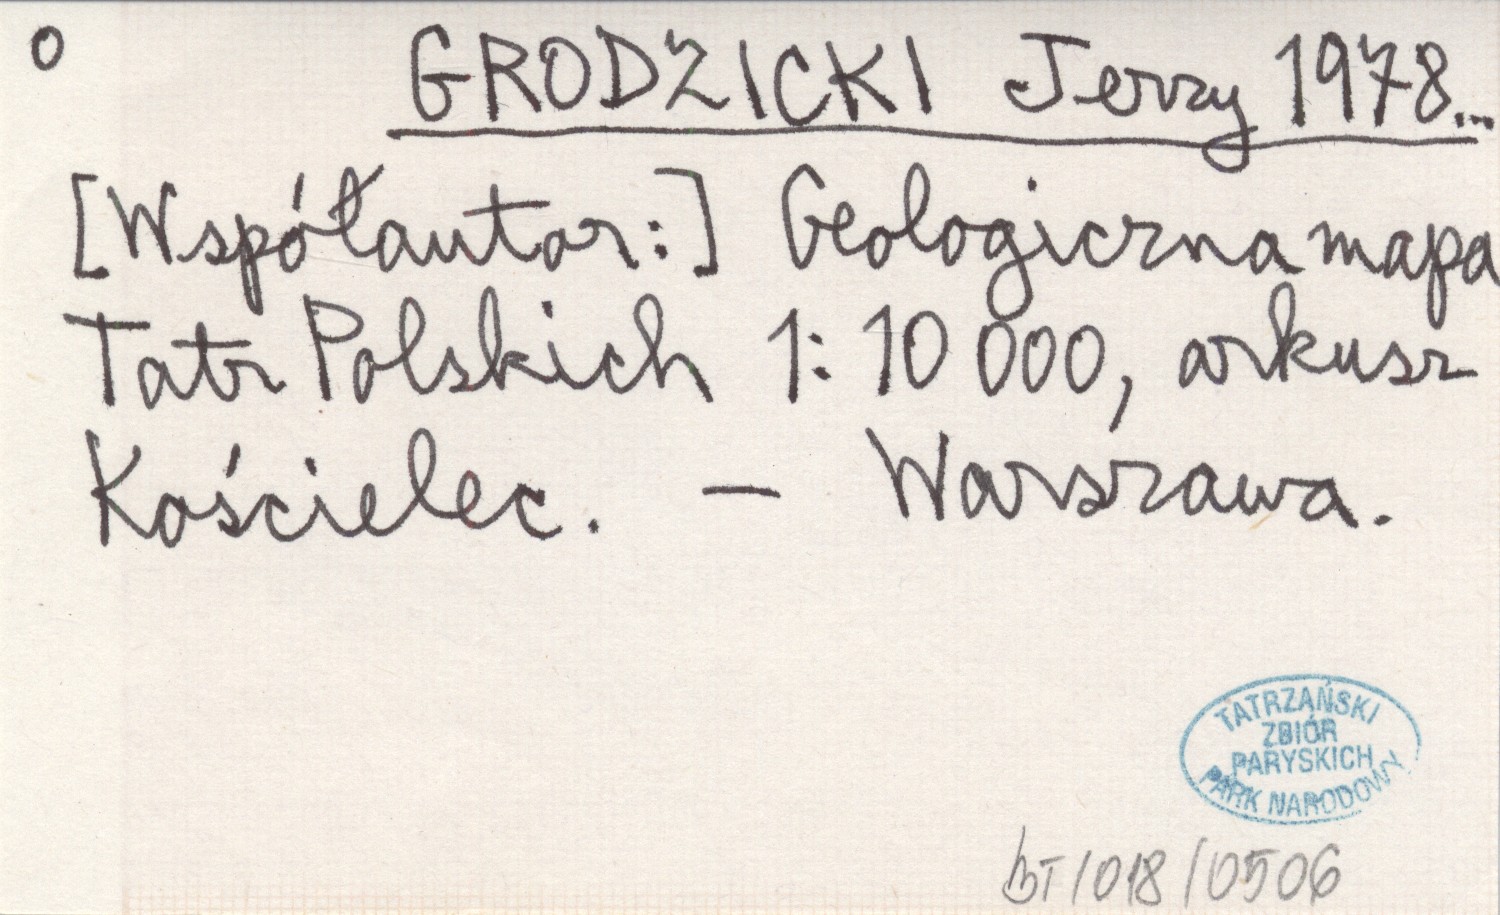 o
GRODZICKI Jerzy 1978...
[Współautor:] Geologiczna mapa
Tatr Polskich 1:10 000, arkusz
Kościelec. — Warszawa.
TATRZAŃSKI
ZBIÓR
PARYSKICH
PARK NARODOWY
BT/018/0506